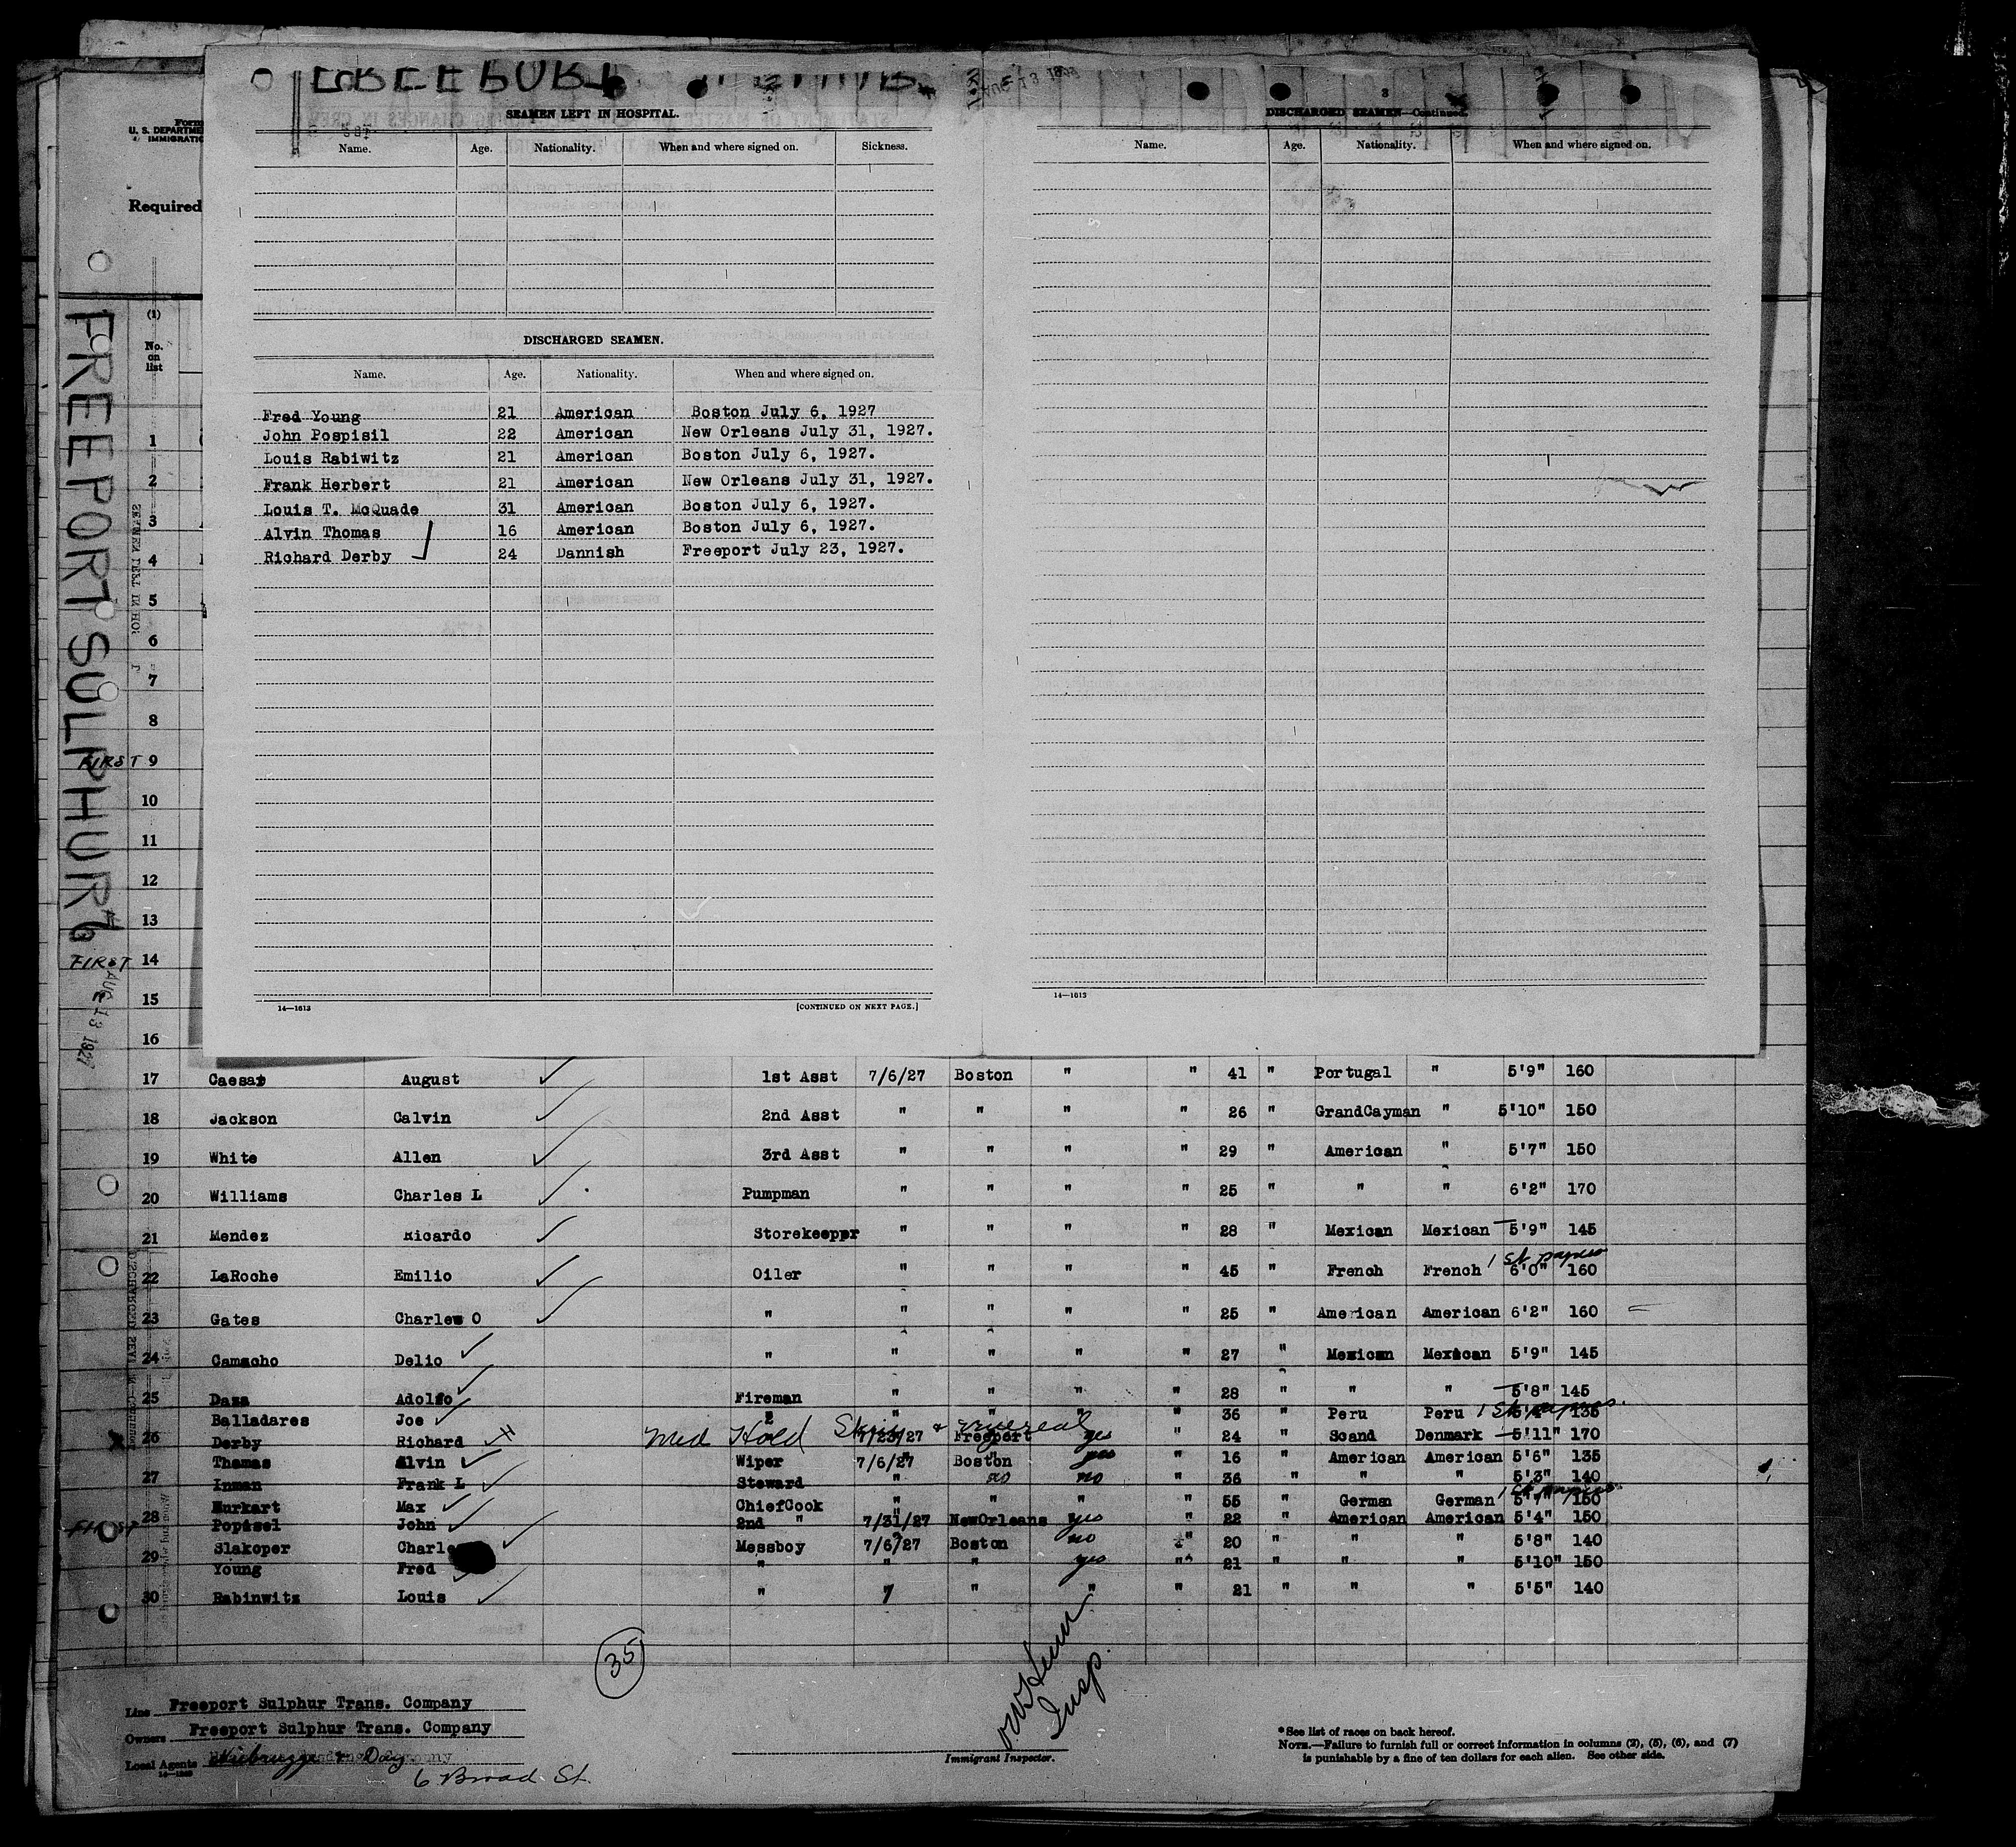 SEAMEN LEFT IN HOSPITAL.
Name. Age. Nationality. When and where signed on. Sickness.
DISCHARGED SEAMEN.
Name. Age. Nationality. When and where signed on.
Fred Young 21 American Boston July 6, 1927
John Pospisil 22 American New Orleans July 31, 1927.
Louis Rabiwitz 21 American Boston July 6, 1927.
Frank Herbert 21 American New Orleans July 31, 1927.
Louis T. McQuade 31 American Boston July 6, 1927.
Alvin Thomas 16 American Boston July 6, 1927.
Richard Derby 24 Dannish Freeport July 23, 1927.
14—1613 [CONTINUED ON NEXT PAGE.]
3
DISCHARGED SEAMEN—Continued.
Name. Age. Nationality. When and where signed on.
14—1613
Form
U. S. DEPARTME
IMMIGRATIO
Required
FREEPORT SULPHUR #6
AUG 13 1927
(1)
No. on list
1
2
3
4
5
6
7
8
FIRST 9
10
11
12
13
FIRST 14
15
16
17 Caesar August 1st Asst 7/6/27 Boston " " 41 " Portugal " 5'9" 160
18 Jackson Calvin 2nd Asst " " " " 26 " GrandCayman " 5'10" 150
19 White Allen 3rd Asst " " " " 29 " American " 5'7" 150
20 Williams Charles L Pumpman " " " " 25 " " " 6'2" 170
21 Mendez Ricardo Storekeeper " " " " 28 " Mexican Mexican 5'9" 145
22 LaRoche Emilio Oiler " " " " 45 " French French 1st papers 6'0" 160
23 Gates Charles O " " " " " 25 " American American 6'2" 160
24 Camacho Delio " " " " " 27 " Mexican Mexican 5'9" 145
25 Daza Adolfo Fireman " " " " 28 " " " 5'8" 145
Balladares Joe " " " " 36 " Peru Peru 1st papers. 5'4" 135
26 Derby Richard Med Hold 7/23/27 Freeport yes " 24 " Scand Denmark 5'11" 170
Thomas Alvin Wiper 7/6/27 Boston yes " 16 " American American 5'6" 135
27 Inman Frank L Steward " no no " 36 " " " 5'3" 140
Burkart Max ChiefCook " " " " 55 " German German 1st papers 5'7" 150
28 Popisel John 2nd " 7/31/27 NewOrleans yes " 22 " American American 5'4" 150
Slakoper Charle Messboy 7/6/27 Boston no " 20 " " " 5'8" 140
29 Young Fred " " " yes " 21 " " " 5'10" 150
30 Rabinwitz Louis " " " " " 21 " " " 5'5" 140
35
Insp.
Line Freeport Sulphur Trans. Company
Owners Freeport Sulphur Trans. Company
Local Agents & Day
6 Broad St.
Immigrant Inspector.
*See list of races on back hereof.
NOTE.—Failure to furnish full or correct information in columns (2), (5), (6), and (7)
is punishable by a fine of ten dollars for each alien. See other side.